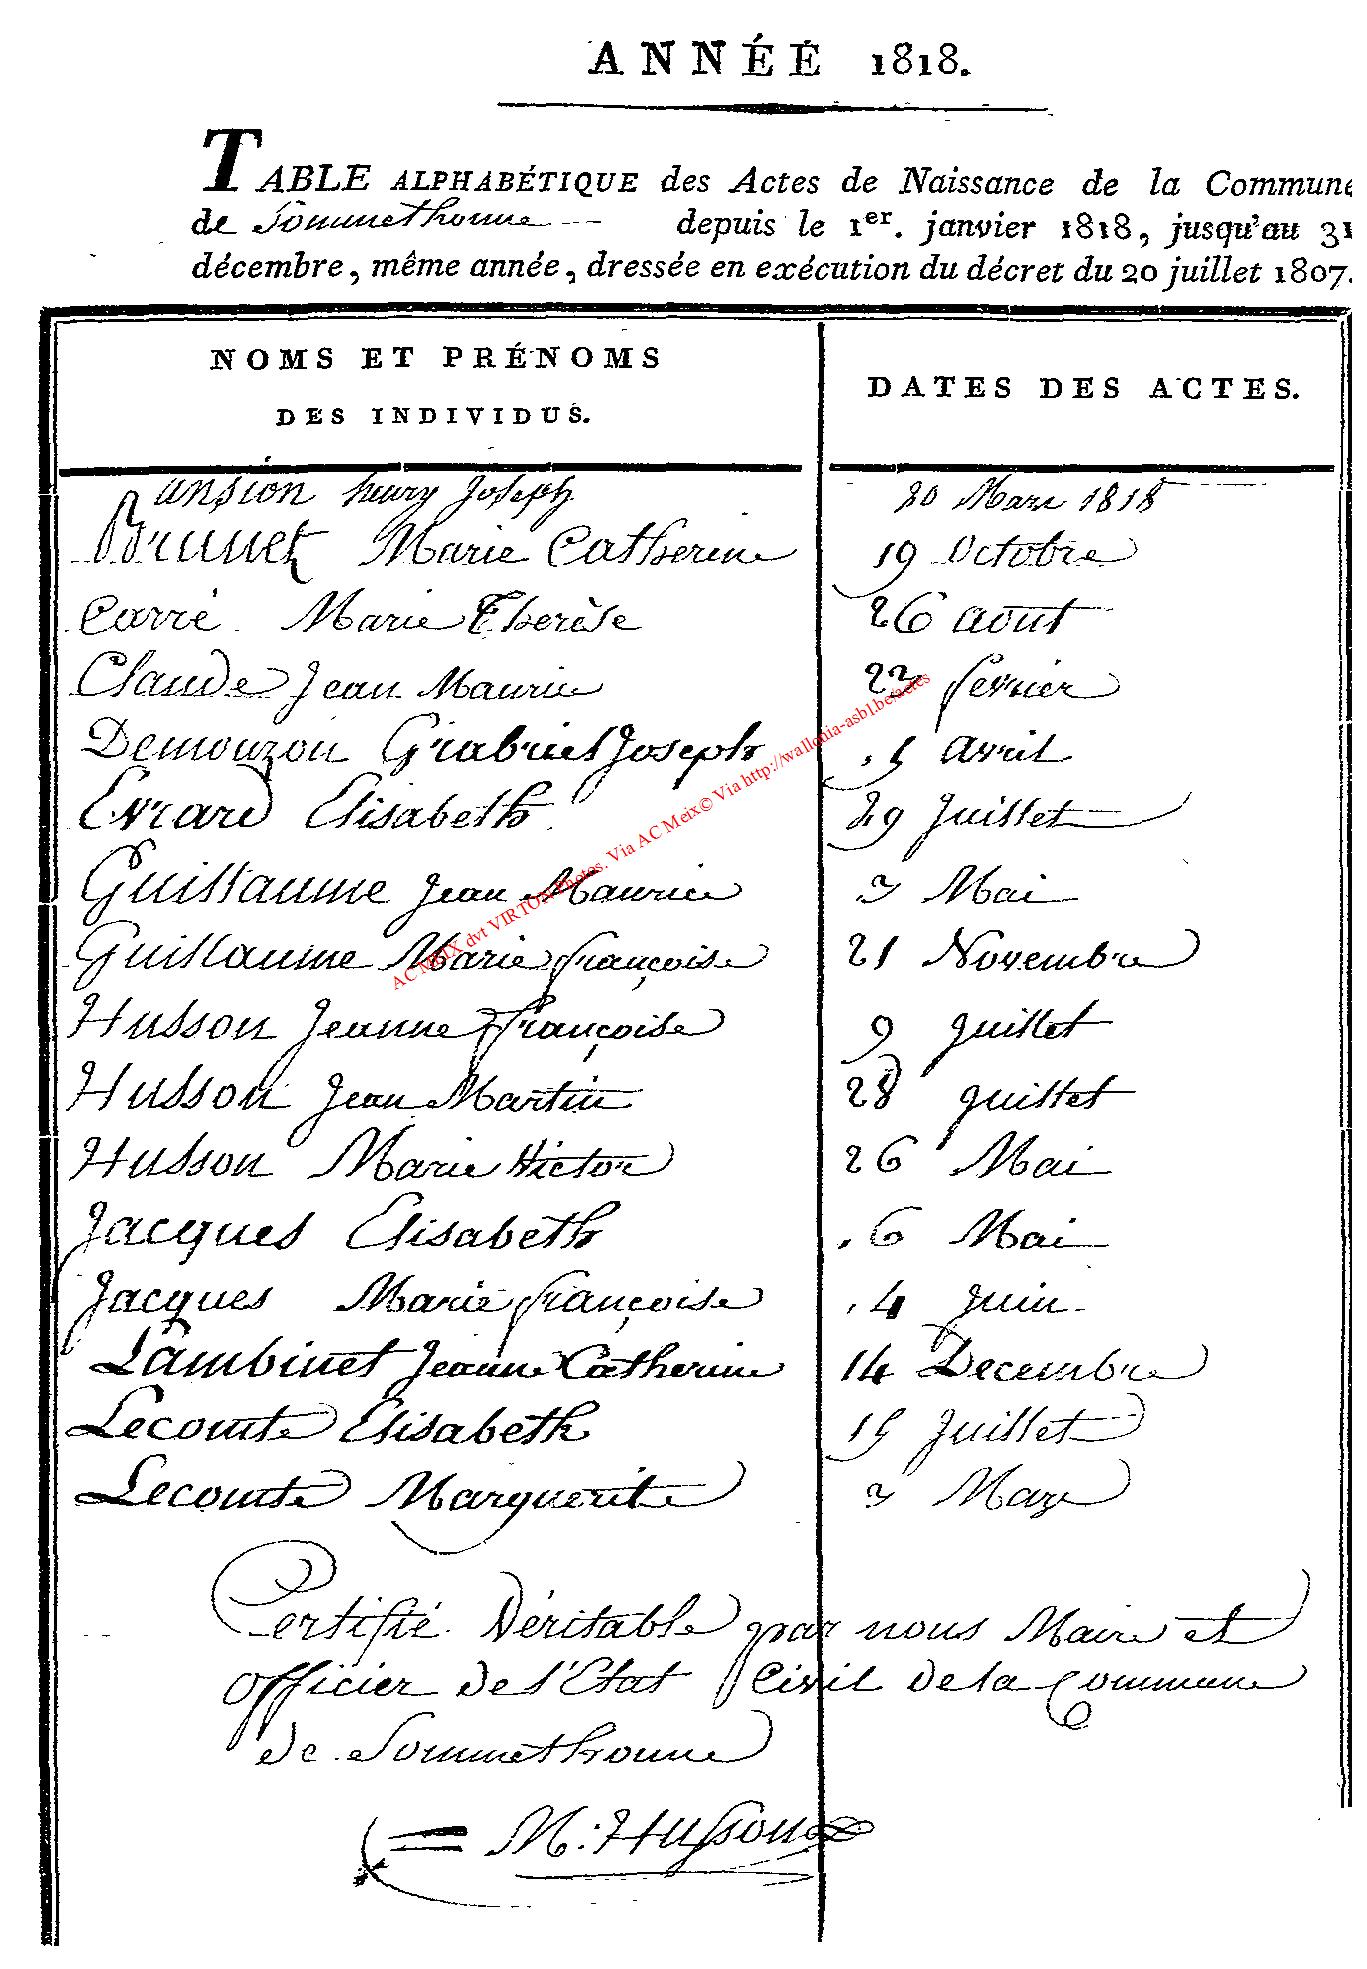 ANNÉE 1818.
TABLE ALPHABÉTIQUE des Actes de Naissance de la Commune
de Sommethonne depuis le 1er. janvier 1818, jusqu'au 31
décembre, même année, dressée en exécution du décret du 20 juillet 1807.
NOMS ET PRÉNOMS
DES INDIVIDUS.
DATES DES ACTES.
ansion henry Joseph 20 Mars 1818
Brunet Marie Catherine 19 Octobre
Carré Marie Therèse 26 aout
Claude Jean Maurice 22 fevrier
Demouzon Grabriel Joseph 5 avril
Evrard Elisabeth 29 Juillet
Guillaume Jean Maurice 3 Mai
Guillaume Marie françoise 21 Novembre
Husson Jeanne françoise 9 Juillet
Husson Jean Martin 28 Juillet
Husson Marie Victor 26 Mai
Jacques Elisabeth 6 Mai
Jacques Marie françoise 4 Juin
Lambinet Jeanne Catherine 14 Decembre
Lecomte Elisabeth 15 Juillet
Lecomte Marguerite 3 Mars
Certifié Véritable par nous Maire et
officier de l'Etat Civil de la Commune
de Sommethonne
M: Husson
AC MEIX dvt VIRTON Photos. Via AC Meix© Via http://wallonia-asbl.be/actes